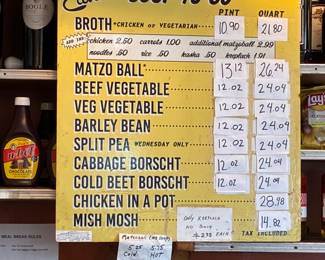 PINT QUART
BROTH *CHICKEN or VEGETARIAN 10.90 21.80
ADD INS chicken 2.50 carrots 1.00 additional matzoball 2.99
noodles .50 rice .50 kasha .50 kreplach 1.91
MATZO BALL* 13.12 26.24
BEEF VEGETABLE 12.02 24.04
VEG VEGETABLE 12.02 24.04
BARLEY BEAN 12.02 24.04
SPLIT PEA WEDNESDAY ONLY 12.02 24.04
CABBAGE BORSCHT 12.02 24.04
COLD BEET BORSCHT 12.02 24.04
CHICKEN IN A POT 28.98
MISH MOSH 14.82
TAX INCLUDED
Only KREPLACH
NO Soup
2.73 EACH
5.25 5.75
Cold HOT
BOGLE
CHOCOLATE
MEAL BREAK RULES